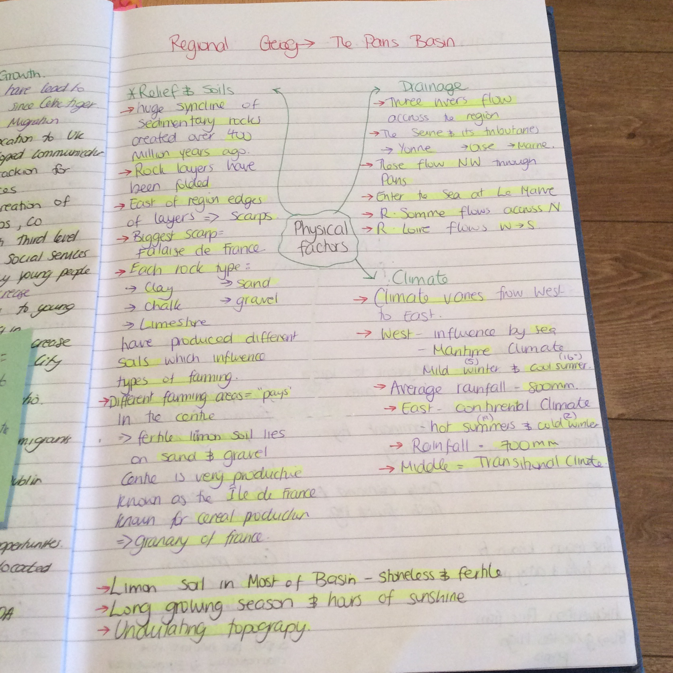 Regional Geog → The Paris Basin
* Relief & Soils
→ huge syncline of
sedimentary rocks
created over 400
million years ago.
→ Rock layers have
been folded
→ East of region edges
of layers => scarps
→ Biggest scarp=
Falaise de france.
→ Each rock type =
→ Clay → sand
→ chalk → gravel
→ Limestone
have produced different
soils which influence
types of farming.
→ Different farming areas = "pays"
In the centre
=> fertile limon soil lies
on sand & gravel
Centre is very productive
known as the Île de france
known for cereal production
=> granary of france.
Drainage
→ Three rivers flow
accross the region
→ The Seine & its tributaries
→ Yonne → Oise → Marne.
→ These flow NW through
Paris
→ Enter the sea at Le Havre
→ R. Somme flows accross N
→ R Loire flows W→S
Physical
factors
Climate
→ Climate varies from West
to East.
→ West - influence by sea
- Maritime Climate
(16°)
Mild winter & cool summer.
(5)
→ Average rainfall - 800mm.
→ East - continental Climate
- hot summers & cold winter
(2)
→ Rainfall - 700mm
→ Middle = Transitional Climate
→ Limon soil in Most of Basin - stoneless & fertile
→ Long growing season & hours of sunshine
→ Undulating topograpy.
Growth.
have lead to
since Celtic tiger
Migration
to UK
for
reation of
Third level
Social services
young people
to young
crease
City
migrants